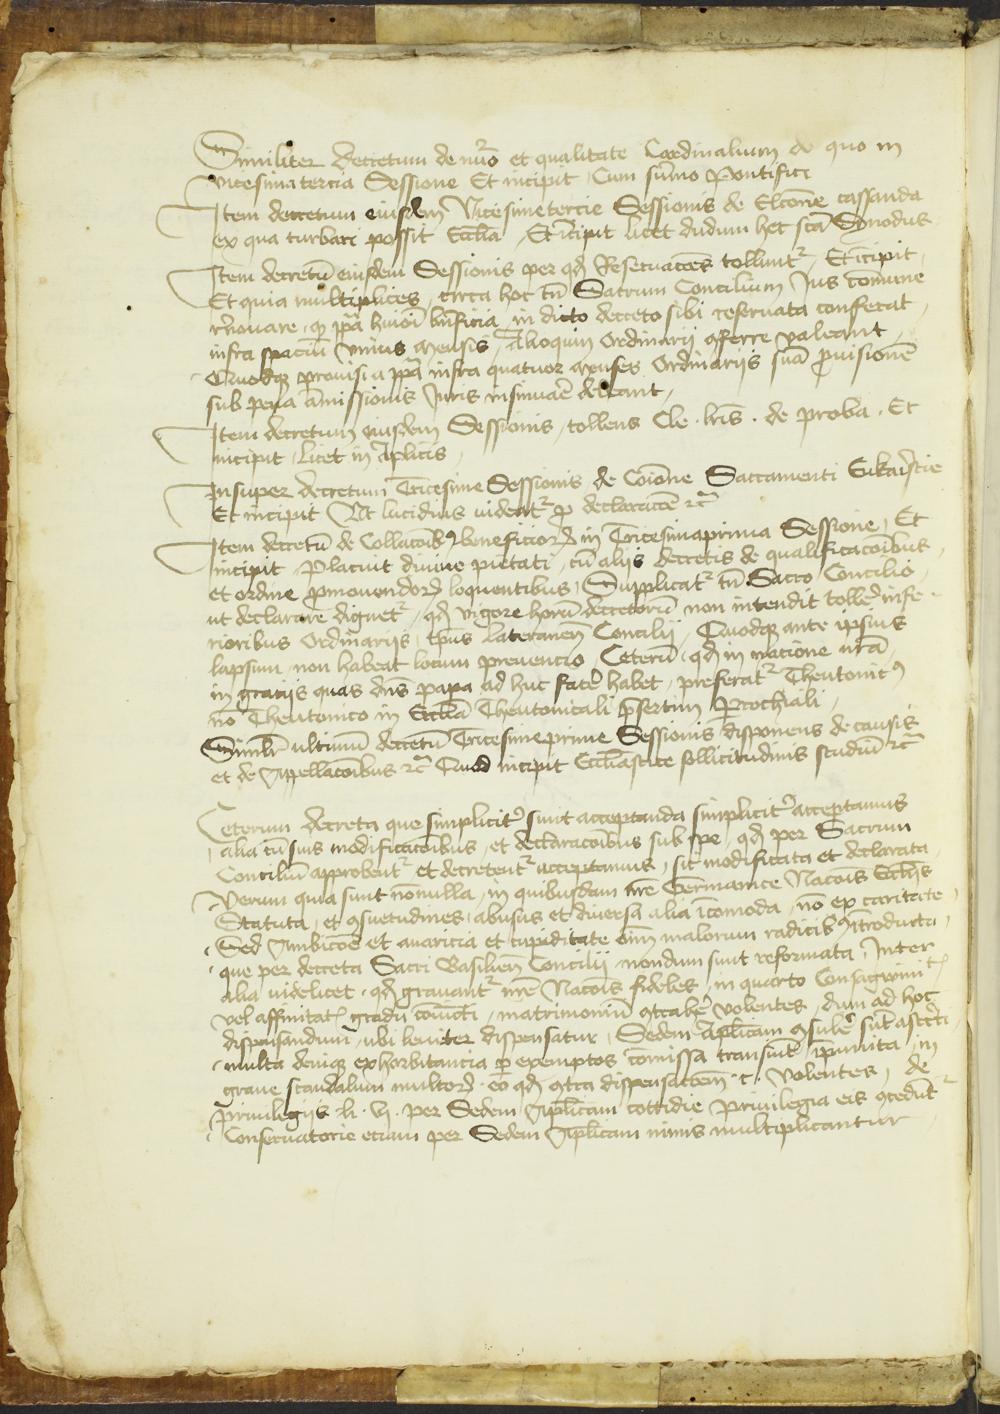 Similiter decretum de nūo et qualitate Cardinalium de quo in
vicesima tercia Sessione Et incipit Cum sūmo Pontifici
Item decretum eiusdem Vicesimetercie Sessionis de Elcōne cassanda
ex qua turbari possit Ecclīa Et īcipit licet dudum hec scā Synodus
Item decretū eiusdem Sessionis per qd Reseruacōes tolluntr Et īcipit
Et quia multiplices circa hoc tn̄ Sacrum Concilium Jus cōmune
rn̄ouare q pp̄a huiōi bn̄ficia in dicto decreto sibi reseruata conferat
infra spaciū vnius Mensis Alioquin Ordinarij ꝯferre valeant
Quodqꝫ prouisi a pp̄a infra quatuor Menses Ordinarijs suā ꝓuisionē
sub pena amissionis Juris insinuar̄e debeant
Item decretum eiusdem Sessionis tollens Cle . lr̄is . de proba . Et
incipit Licet in Aplicis
Insuper decretum Tricesime Sessionis de Coīone Sacramenti Eukaristie
Et incipit Ut lucidius videatr ꝓ declaracōe ⁊c̄
Item decretū de Collacōibꝰ beneficioꝝ in Tricesimaprima Sessione Et
incipit Placuit diuine pietati cū alijs decretis de qualificacōibus
et ordine ꝓmouendoꝝ loquentibus Supplicatr tn̄ Sacro Concilio
ut declarare dignetr qd vigore hoꝝū decretorū non intendit toller̄ infe
rioribus Ordinarijs tp̄us lateranen̄ Concilij Quodqꝫ ante ipsius
lapsum non habeat locum preuencio Ceterū qd in nacione nr̄a
in gracijs quas dn̄s papa ad huc facer̄ habet preferatr Theutonicꝰ
nō Theutonico in Ecclīa Theutonicali p̄sertim Parochiali
Simlr̄ ultimū decretū Tricesimeprime Sessionis disponens de causis
et de Appellacōibus ⁊c̄ Quod incipit Eccliastice sollicitudinis studiū ⁊c̄
Ceterum decreta que simplicitr̄ sunt acceptanda simplicitr̄ acceptamus
alia cū suis modificacōibus et declaracōibus sub spe qd per Sacrum
Conciliū approbentr et decretentr acceptamus sic modificata et declarata
Verum quia sunt nōnulla in quibusdam nr̄e Germanice Nacōis Ecclīis
Statuta et ꝯsuetudines abusus et diuersa alia īcomoda nō ex caritate
Sed Ambicōe et auaricia et cupiditate oīm malorum radicibꝰ ītroducta
que per decreta Sacri Basilien̄ Concilij nondum sunt reformata Inter
alia videlicet qd grauantr nr̄e Nacōis fideles in quarto Consagwinitꝭ
vel affinitatꝭ gradu cōiuncti matrimoniū ꝯtraher̄ volentes dum ad hoc
dispensandum ubi leuiter dispensatur Sedem Aplicam ꝯsuler̄ sūt astricti
multa deniqꝫ exhorbitancia ꝑ exemptos cōmissa transiūt īpunita in
graue scandalum multoꝝ eo qd ꝯtra dispensacōem c . Volentes de
Priuilegijs . li . vi . per Sedem Aplicam cottidie Priuilegia eis ꝯceduntr
Conseruatorie eciam per Sedem Aplicam nimis multiplicantur